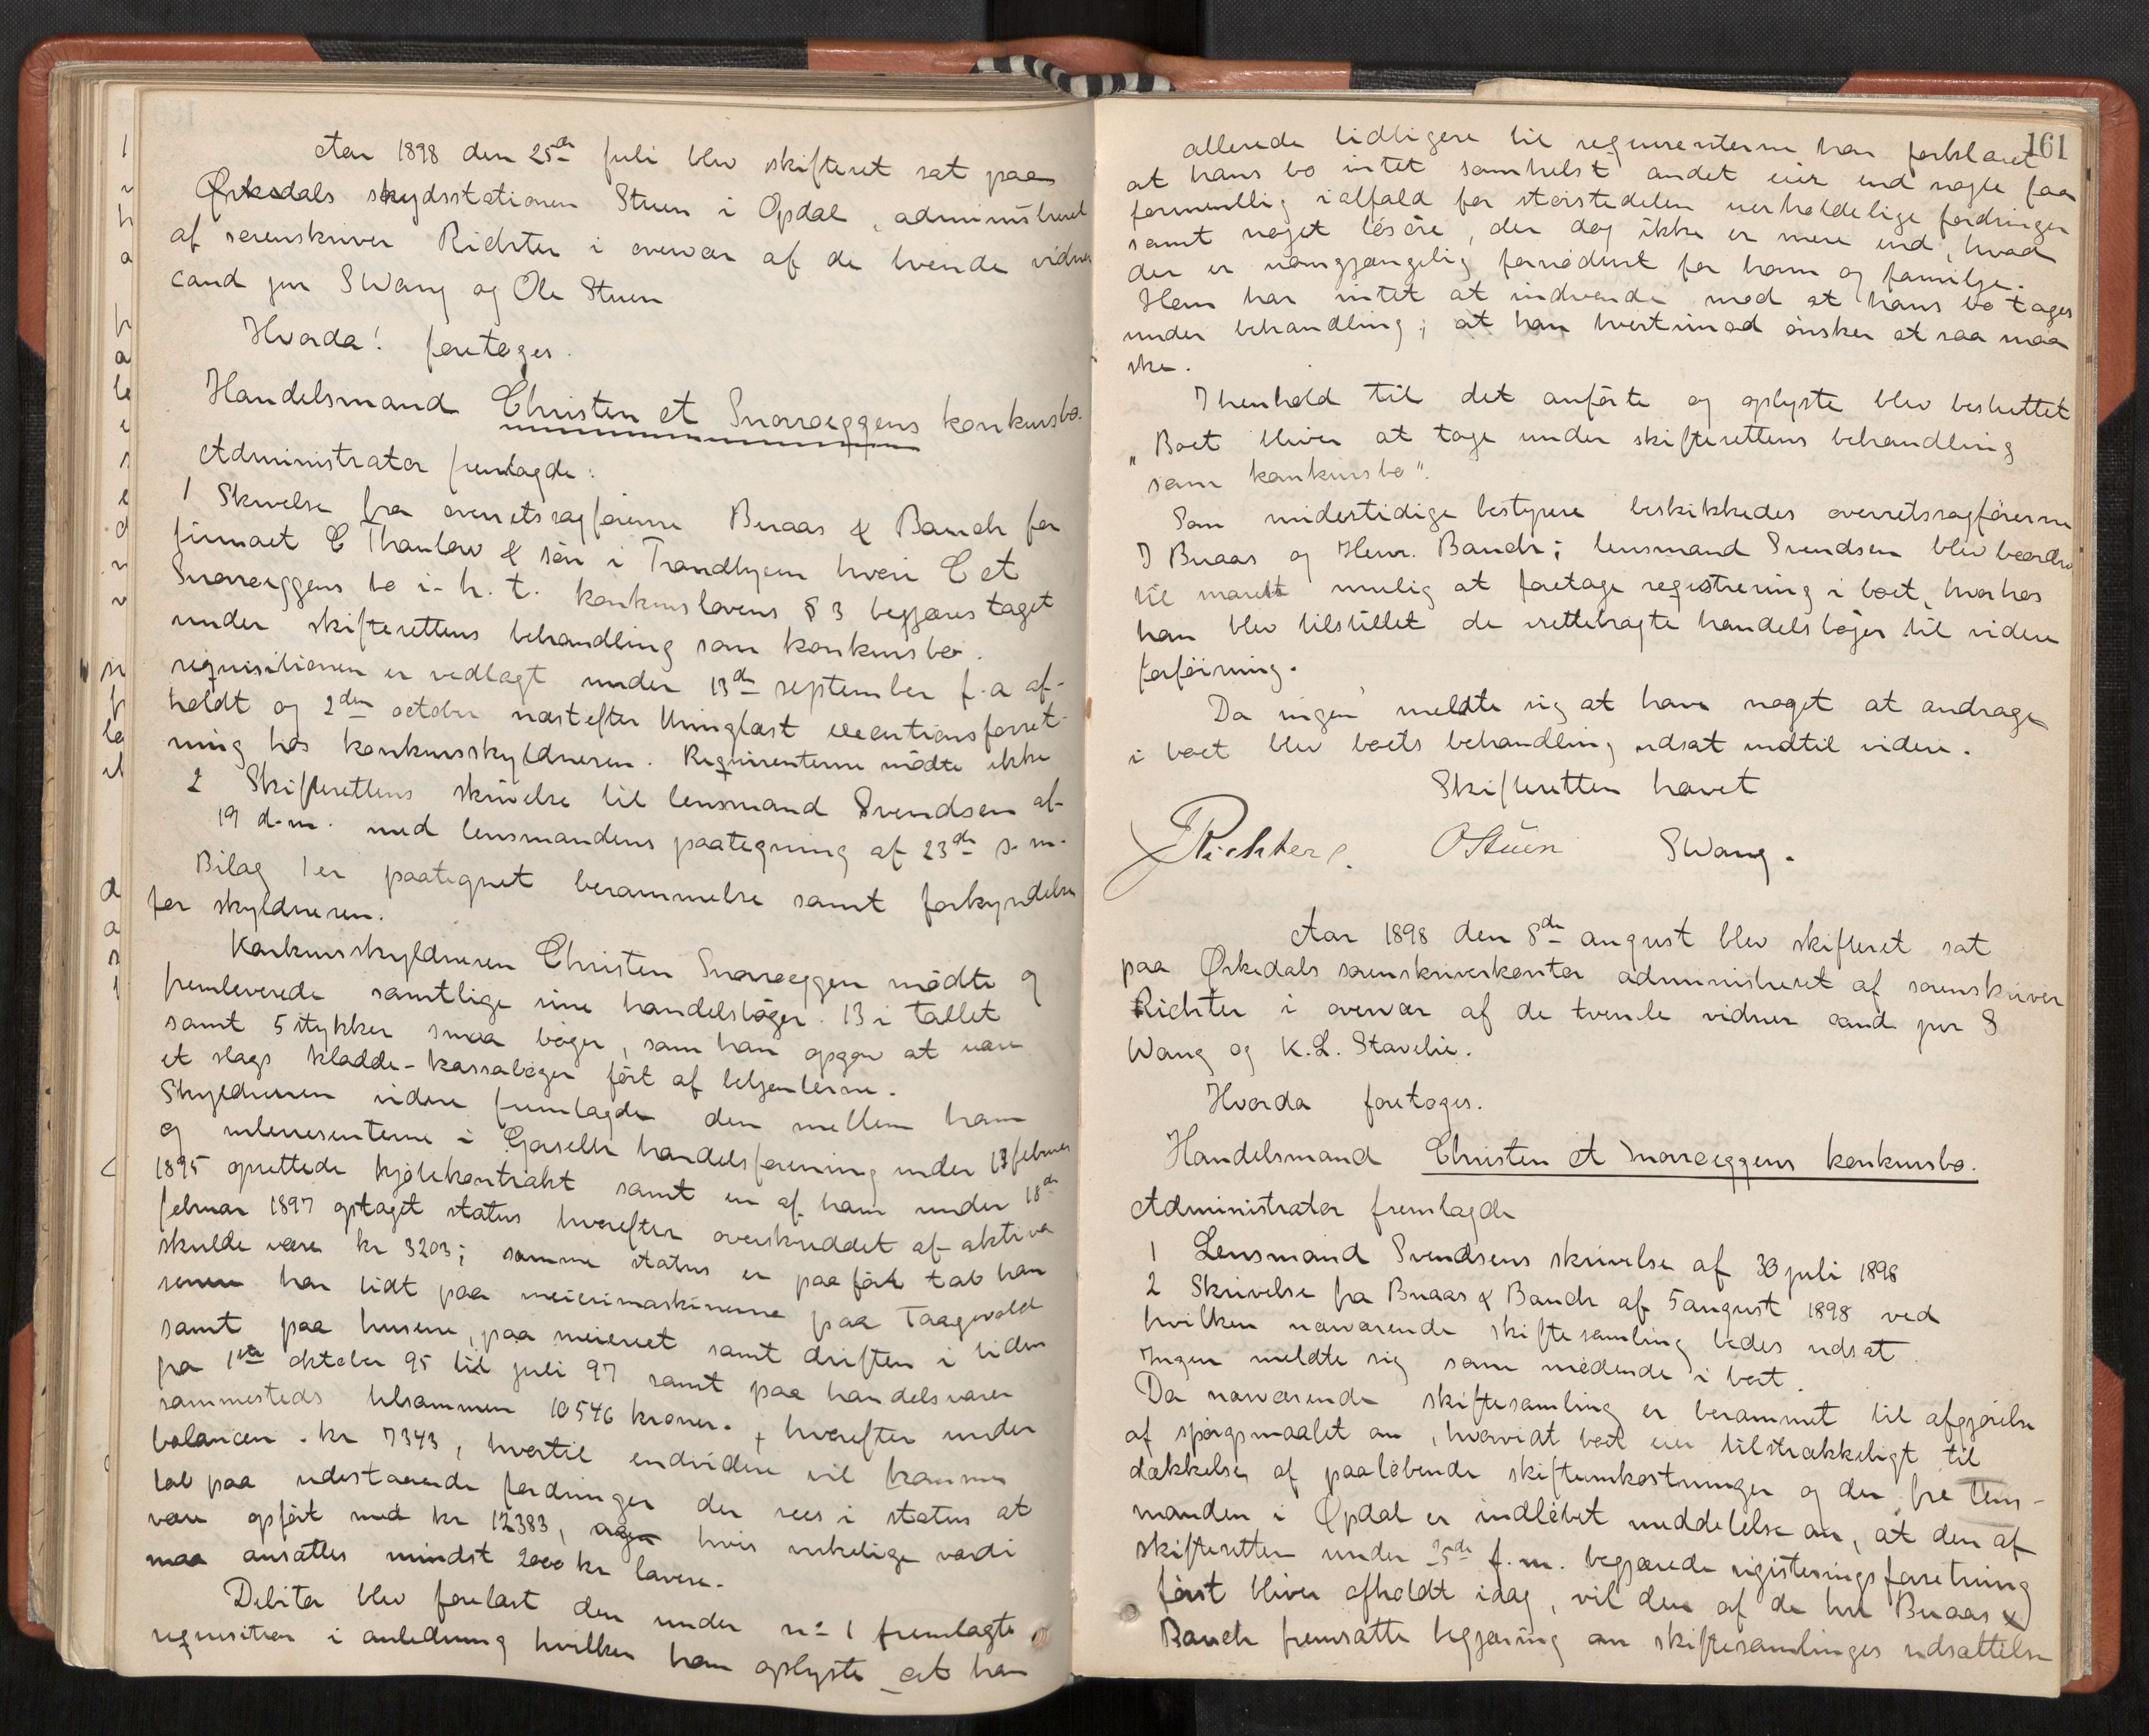 Aar 1898 den 25de juli blev skifteret sat paa
Ørkedals skydsstationen Stuen i Opdal, administreret
af sorenskriver Richter i overvær af de tvende vidner
cand jur S Wang og Ole Stuen
Hvorda! foretoges.
Handelsmand Christen et Snoroeggens konkursbo.
Administrator fremlagde:
1 Skrivelse fra overretssagførerne Buaas & Bauch for
firmaet C Thaulow & søn i Trondhjem hvori C et
Snoroeggens bo i. h. t. konkurslovens § 3 begjæres taget
under skifterettens behandling som konkursbo.
requisitionen er vedlagt under 13de september f.a af-
holdt og 2den october næstefter thinglæst executionsforret-
ning hos konkursskyldneren. Requirenterne mødte ikke
2 Skifterettens skrivelse til lensmand Svendsen af
19 d.m. med lensmandens paategning af 23de s.m.
Bilag 1 er paategnet berammelse samt forkyndelse
for skyldneren.
Konkursskyldneren Christen Snoroeggen mødte og
fremleverede samtlige sine handelsbøger. 13 i tallet
samt 5 stykker smaa bøger, som han opgav at være
et slags kladde-kassabøger ført af betjenterne.
Skyldneren videre fremlagde den mellem ham
og interessenterne i Gorseth handelsforening under 13 februar
1895 oprettede kjøbekontrakt samt en af ham under 18de
februar 1897 optaget status hvorefter overskuddet af aktiva
skulde være kr 3203; samme status er paaført tab han
senere har lidt paa meierimaskinerne paa Taagvold
samt paa husene, paa meieriet samt driften i tiden
fra 1ste oktober 95 til juli 97 samt paa handelsvarer
sammesteds tilsammen 10546 kroner. hvorefter under
balancen. kr 7343, hvortil endvidere vil komme
tab paa udestaaende fordringer der sees i status at
være opført med kr 12383, hvis virkelige værdi
maa ansættes mindst 2000 kr lavere.
Debitor blev forelæst den under no 1 fremlagte
requisition i anledning hvilken han oplyste at han
161
allerede tidligere til requirenterne har forklaret
at hans bo intet somhelst andet eier end nogle faa
formentlig ialfald for størstedelen uerholdelige fordringer
samt noget løsøre, der dog ikke er mere end, hvad
der er uomgjængelig fornødent for ham og familje.
Han har intet at indvende mod at hans bo tages
under behandling; at han tvertimod ønsker at saa maa
ske.
I henhold til det anførte og oplyste blev besluttet
„Boet bliver at tage under skifterettens behandling
som konkursbo".
Som midlertidige bestyrere beskikkedes overretssagførerne
J Buaas og Henr. Bauch; lensmand Svendsen blev beordret
til snarest mulig at foretage registrering i boet, hvorhos
han blev tilstillet de rettebragte handelsbøger til videre
forføining.
Da ingen meldte sig at have noget at andrage
i boet blev boets behandling udsat indtil videre.
Skifteretten hævet
J Richter. O Stuen S Wang.
Aar 1898 den 8de august blev skifteret sat
paa Ørkedals sorenskriverkontor administreret af sorenskriver
Richter i overvær af de tvende vidner cand jur S
Wang og K. L. Stavelie.
Hvorda foretoges.
Handelsmand Christen et Snoroeggens konkursbo.
Administrator fremlagde
1 Lensmand Svendsens skrivelse af 30 juli 1898
2 Skrivelse fra Buaas & Bauch af 5 august 1898 ved
hvilken nærværende skiftesamling bedes udsat.
Ingen meldte sig som mødende i boet.
Da nærværende skiftesamling er berammet til afgjørelse
af spørgsmaalet om, hvorvidt boet eier tilstrækkeligt til
dækkelse af paaløbende skifteomkostninger og der fra lens-
manden i Opdal er indløbet meddelelse om, at den af
skifteretten under 25de f.m. begjærede registreringsforretning
først bliver afholdt idag, vil den af de hrr Buaas &
Bauch fremsatte begjæring om skiftesamlinges udsættelse